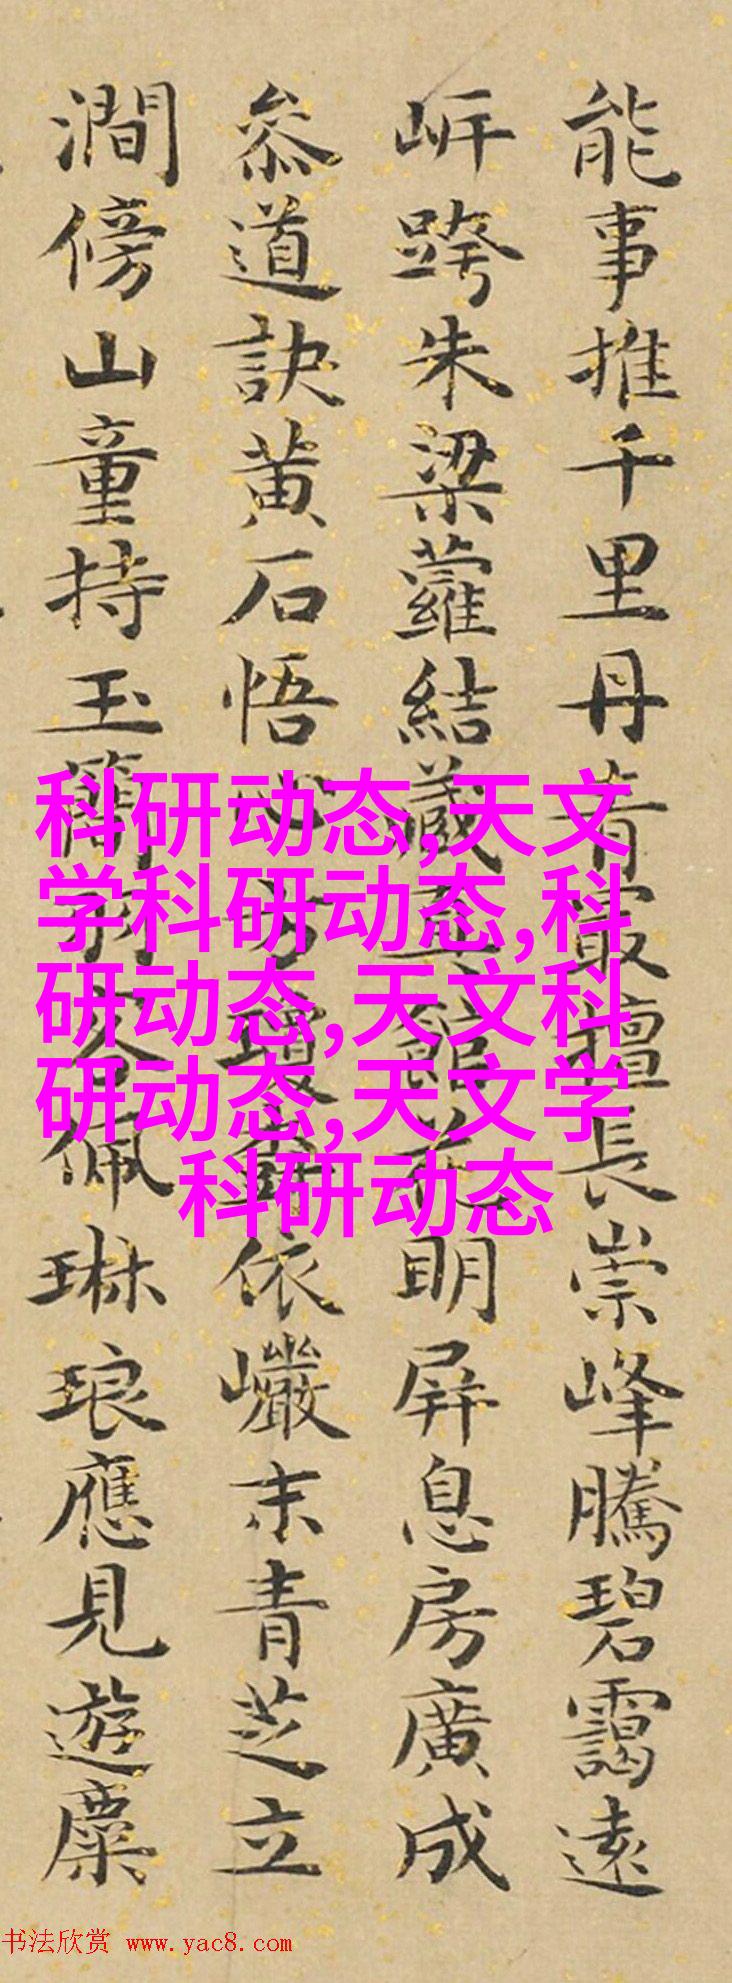 能事推千里丹青最擅長崇峰騰碧靄遠
岍跨朱梁蘿結藏館明屏息房廣成
叅道訣黄石悟方瓊依巘末青芝立
澗傍山童持玉簡客佩琳琅應見遊麋
科研动态,天文
学科研动态,科
研动态,天文科
研动态,天文学
科研动态
书法欣赏 www.yac8.com